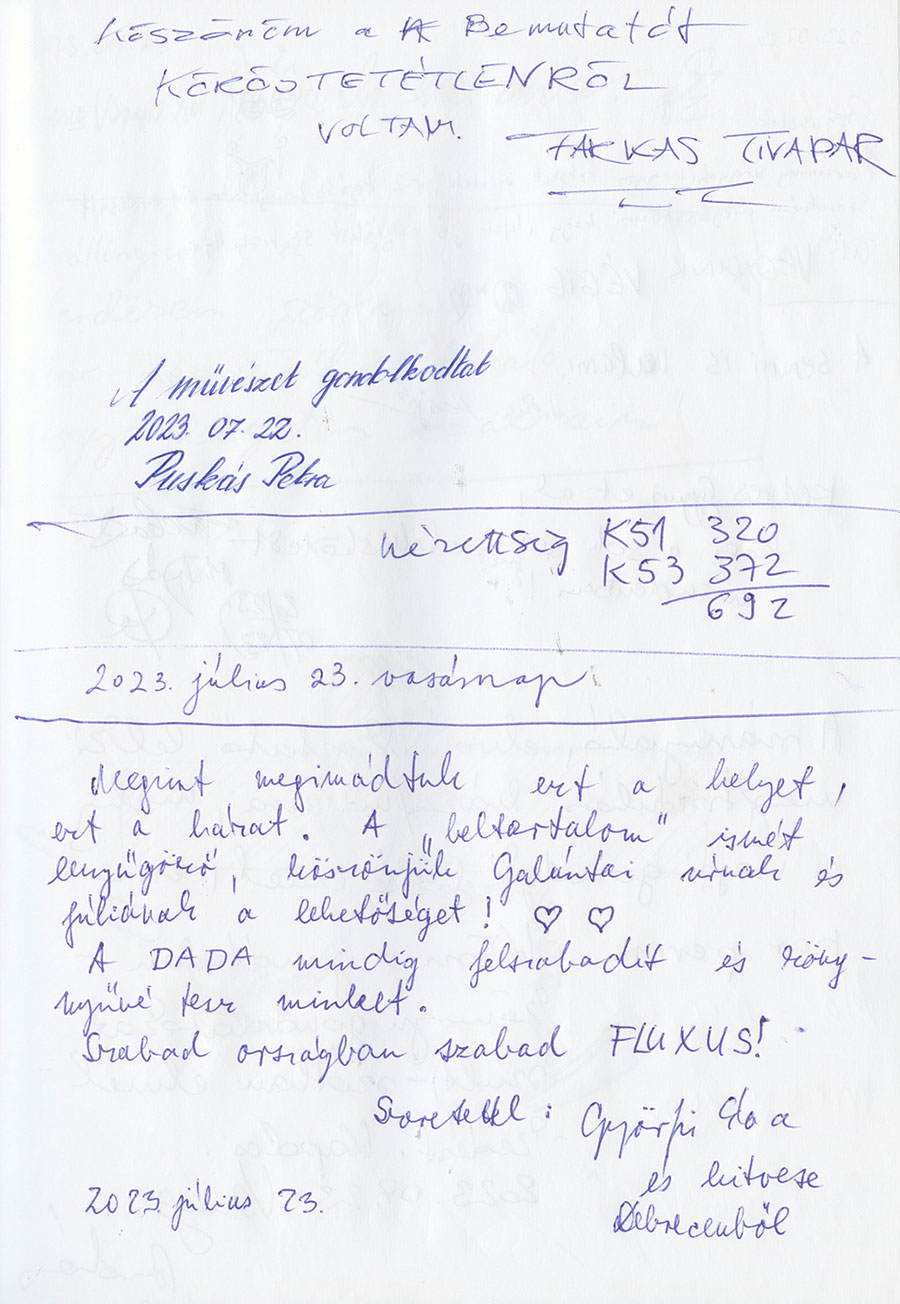 Köszönöm a Bemutatót
KŐRÖSTETÉTLENRŐL
VOLTAM.
FARKAS TIVADAR
A művészet gondolkodtat
2023. 07. 22.
Puskás Petra
Nézettség K51 320
K53 372
692
2023. július 23. vasárnap
Megint megimádtuk ezt a helyet,
ezt a házat. A „beltartalom” ismét
lenyűgöző, köszönjük Galántai úrnak és
Júliának a lehetőséget! ♡ ♡
A DADA mindig felszabadít és köny-
nyűvé tesz minket.
Szabad országban szabad FLUXUS!
Szeretettel: Györfi
és hitvese
Debrecenből
2023. július 23.